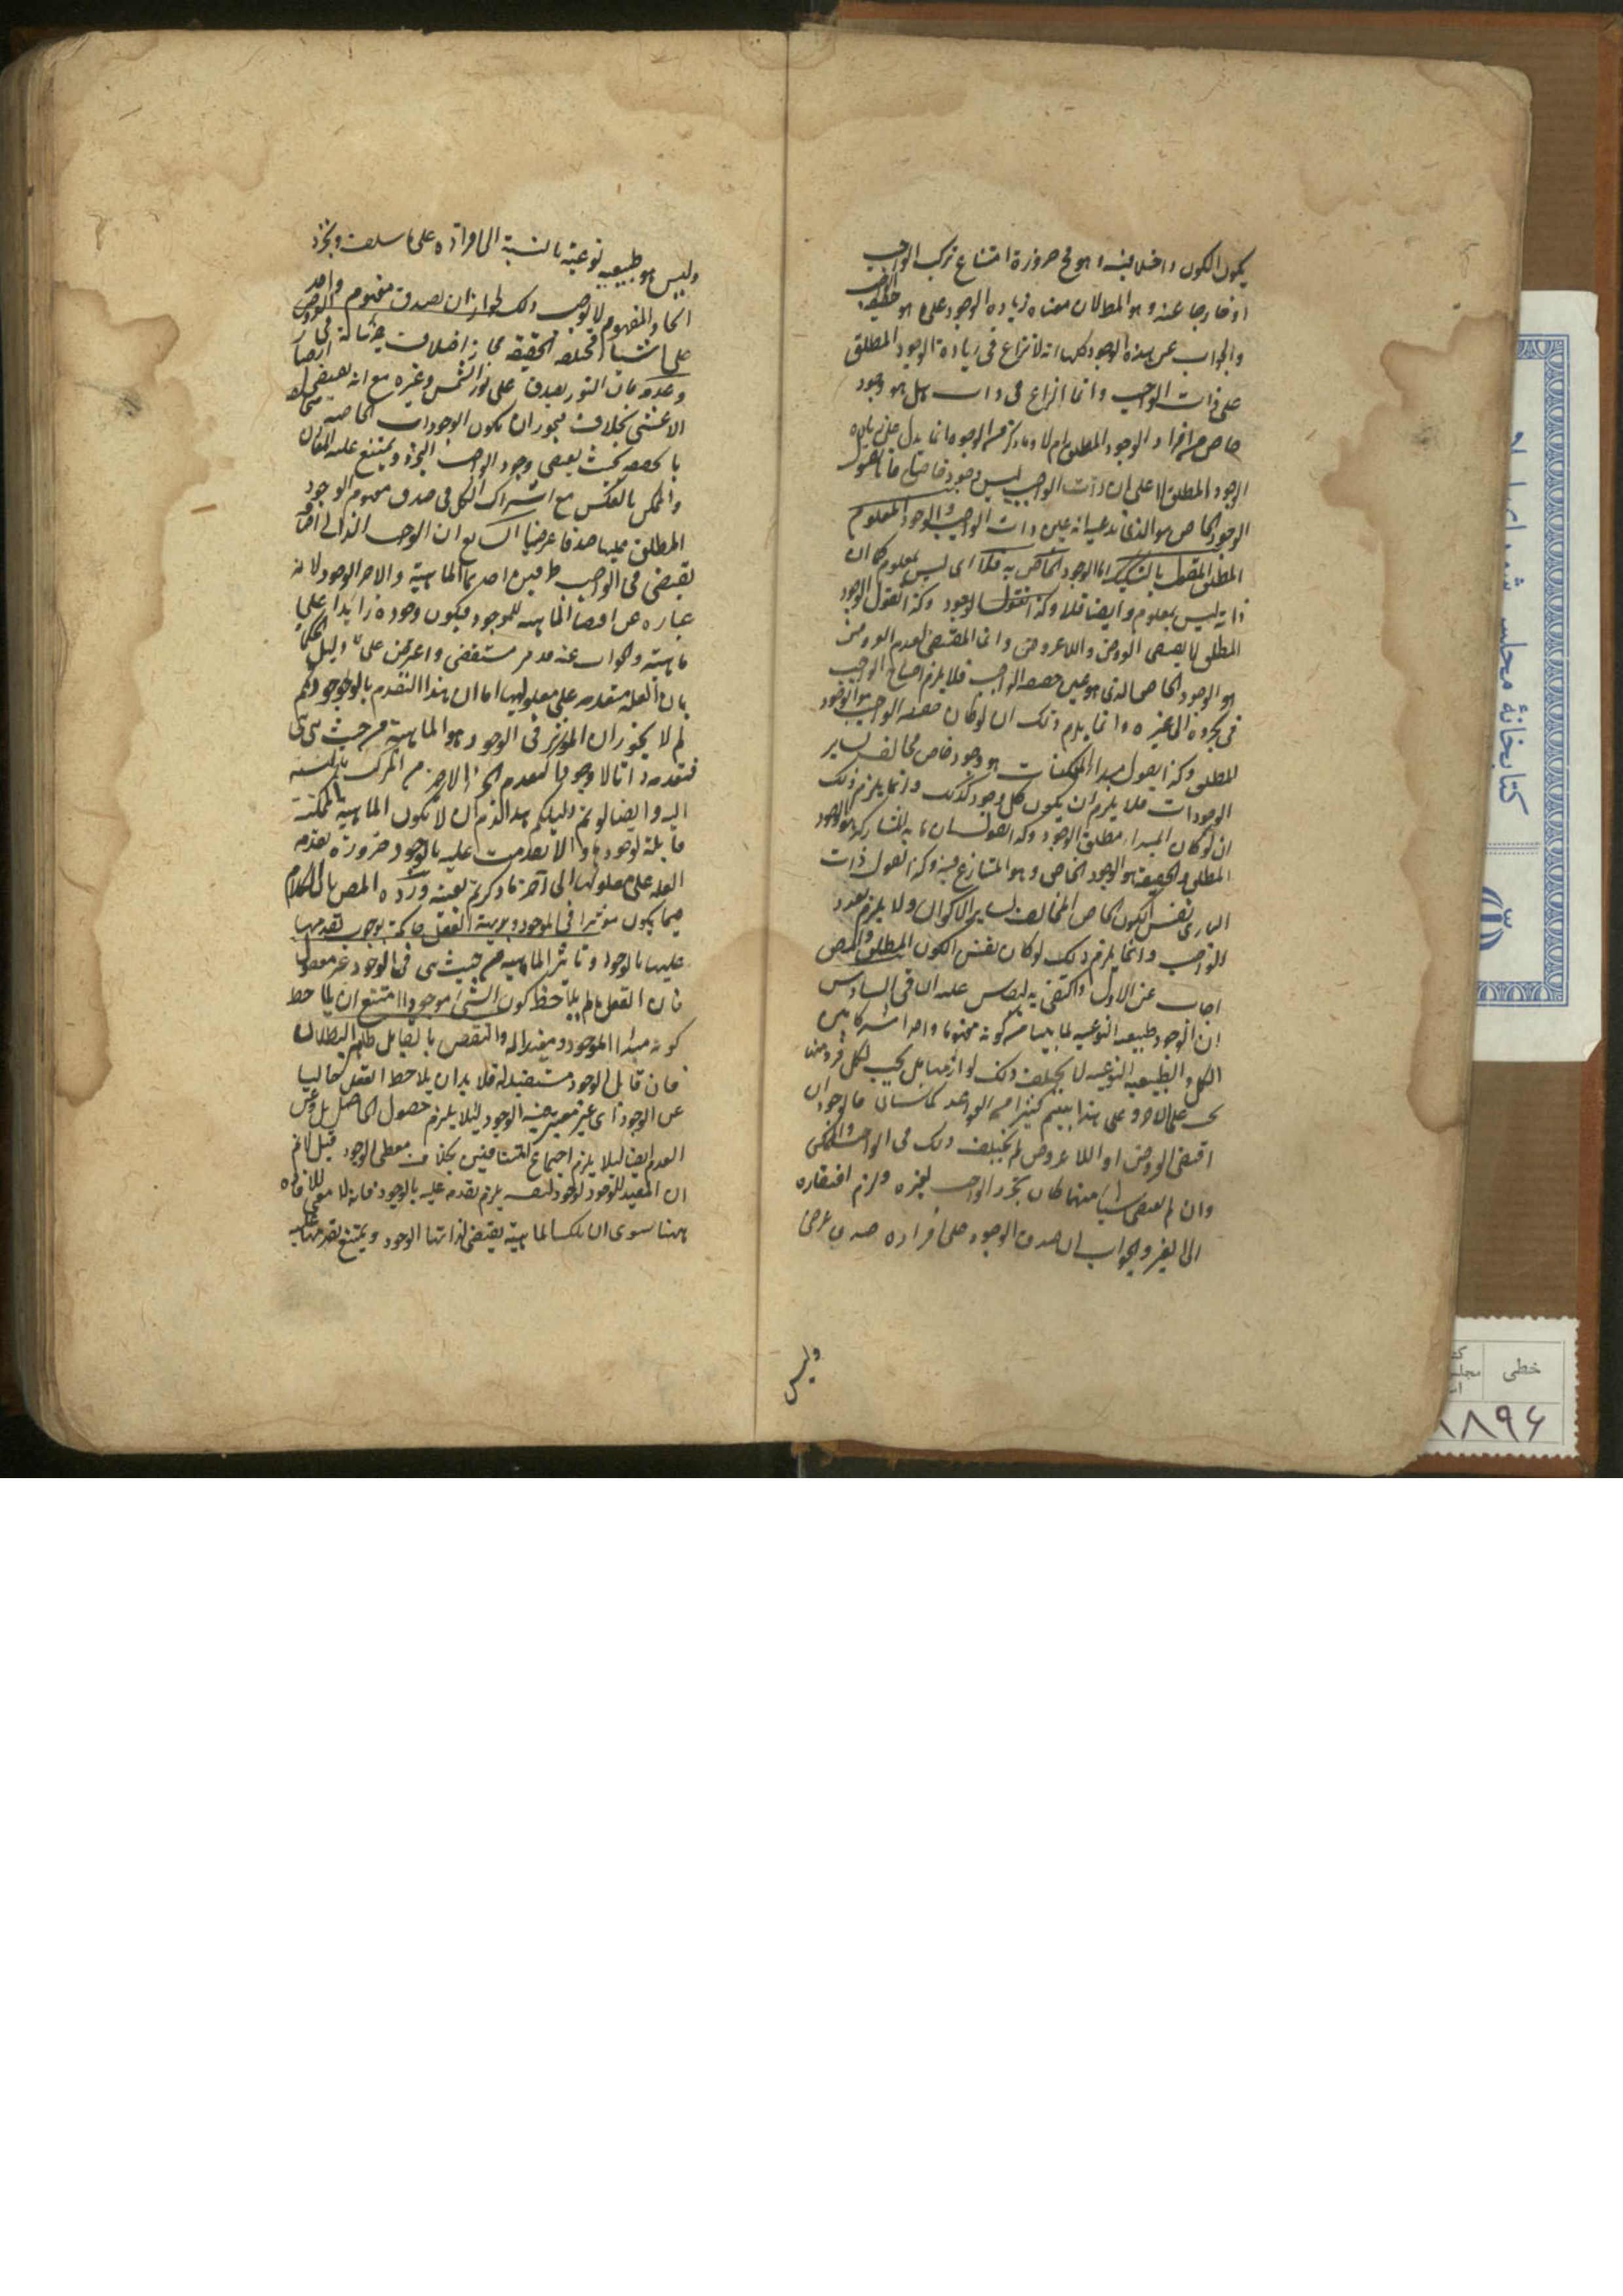 يكون الكون داخلا فيه وهو مح ضرورة امتناع تركب الواجب
او خارجا عنه وهو المط لان معناه زيادة الوجود على ما هو حقيقة الواجب
والجواب عن هذه الوجوه كلها انه لا نزاع في زيادة الوجود المطلق
على ذات الواجب وانما النزاع في ذات هل هو وجود
خاص من افراد الوجود المطلق ام لا وما ذكر من الوجوه انما يدل على زيادة
الوجود المطلق لا على ان ذات الواجب ليس وجودا خاصا فانا نقول
الوجود الخاص هو الذي ندعي انه عين ذات الواجب والوجود المعلوم
المطلق المقول بالتشكيك اما الوجود الخاص به فلا اي ليس بمعلوم كما ان
ذاته ليس بمعلوم وايضا فلا وكذا نقول الوجود وكذا نقول الوجود
المطلق لا يقتضي العروض واللاعروض وانما المقتضي لعدم العروض
هو الوجود الخاص الذي هو عين حقيقة الواجب فلا يلزم احتياج الواجب
في تجرده الى غيره وانما يلزم ذلك ان لو كان حقيقة الواجب هو الوجود
المطلق وكذا نقول مبدا الممكنات هو وجود خاص مخالف لساير
الوجودات فلا يلزم ان يكون كل وجود كذلك وانما يلزم ذلك
ان لو كان المبدا مطلق الوجود وكذا نقول ان ما به المشاركة هو الوجود
المطلق والحقيقة هو الوجود الخاص وهو المتنازع فيه وكذا نقول ذات
الباري نفس الكون الخاص المخالف لساير الاكوان ولا يلزم تعدد
الواجب وانما يلزم ذلك لو كان نفس الكون المطلق والمص
اجاب عن الاول واكتفى به ليقاس عليه الباقي السادس
ان الوجود طبيعة نوعية لما بينا من كونه مفهوما واحدا مشتركا بين
الكل والطبيعة النوعية لا يختلف ذلك لوازمها بل يجب لكل فرد منها
ما يجب على الاخر وعلى هذا بنيتم كثيرا من القواعد كما سياتي فالوجود ان
اقتضى العروض او اللاعروض لم يختلف ذلك في الواجب والممكن
وان لم يقتض شيئا منهما كان تجرد الواجب لغيره ولزم افتقاره
الى الغير والجواب ان صدق الوجود على افراده صدق عرضي
وليس
وليس هو طبيعية نوعية بالنسبة الى افراده على ما سلف ومجرد
اتحاد المفهوم لا يوجب ذلك لجواز ان يصدق مفهوم واحد
على اشياء مختلفة الحقيقة
وعدمه فان النور يصدق على نور الشمس وغيره مع انه يقتضي ابصار
الاعشى بخلاف فيجوز ان يكون الوجودات الخاصة متخالفة
بالحقيقة بحيث يقتضي وجود الواجب التجرد ويمتنع عليه المقارنة
والممكن بالعكس مع اشتراك الكل في صدق مفهوم الوجود
المطلق عليها صدقا عرضيا السابع ان الوجوب الذاتي
يقتضي في الواجب طرفين احديهما الماهية والاخر الوجود لانه
عبارة عن اقتضا الماهية للموجود فيكون وجوده زايدا على
ماهيته والجواب عنه قد مر مستقصى واعترض على دليل الحكما
بان العلة متقدمة على معلولها اما ان هذا التقدم بالوجود فم
لم لا يجوز ان المؤثر في الوجود هو الماهية من حيث هي هي
فتقدمه ذاتا لا وجودا كتقدم اجزاء المركب بالنسبة
اليه وايضا لو تم دليلكم هذا لزم ان لا يكون الماهية الممكنة
قابلة لوجودها والا تقدمت عليه بالوجود ضرورة تقدم
العلة على معلولها الى آخر ما ذكرتم بعينه ورده المص بان الكلام
فيما يكون مؤثرا في الوجود وبديهة العقل حاكمة بوجوب تقدمها
عليها بالوجود وتاثير الماهية من حيث هي في الوجود غير معقول
فان العقل ما لم يلاحظ كون الشئ موجودا امتنع ان يلاحظ
كونه مبدا للوجود ومفيدا له والنقض بالقابل ظاهر البطلان
فان قابل الوجود مستفيد له فلا بد ان يلاحظ العقل خاليا
عن الوجود اي غير معتبر فيه الوجود لئلا يلزم حصول الحاصل بل وعن
العدم ايضا ليلا يلزم اجتماع المتنافيين بخلاف معطي الوجود قيل لا نم
ان المفيد للوجود لوجود لنفسه يلزم تقدمه عليه بالوجود فانه لا معنى للافادة
ههنا سوى ان تلك الماهية يقتضي لذاتها الوجود ويمتنع تقدمها عليه
كتابخانۀ مجلس شورای
خطی
۸۸۹۶